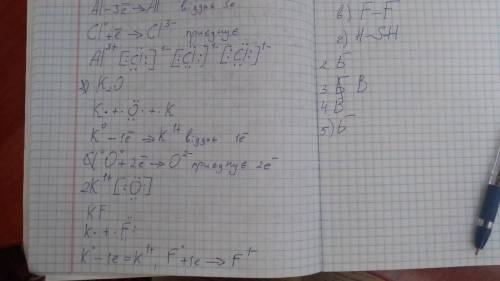 Al-3ē→Al віддає 3е
Cl°+ē→Cl³⁻ приєднує
Al³⁺[:C̈l:]¹⁻[:C̈l:]¹⁻[:C̈l:]¹⁻
K₂O
K•+•Ö•+•K
K°-1ē→K¹⁺ віддає 1ē
O°+2ē→O²⁻ приєднує 2e⁻
2K¹⁺[:Ö:]
KF
K•+•F̈:
K°-1e=K¹⁺, F°+1e→F¹⁻
в) F-F
г) H-S-H
2. Б
3. Б В
4. В
5) Б